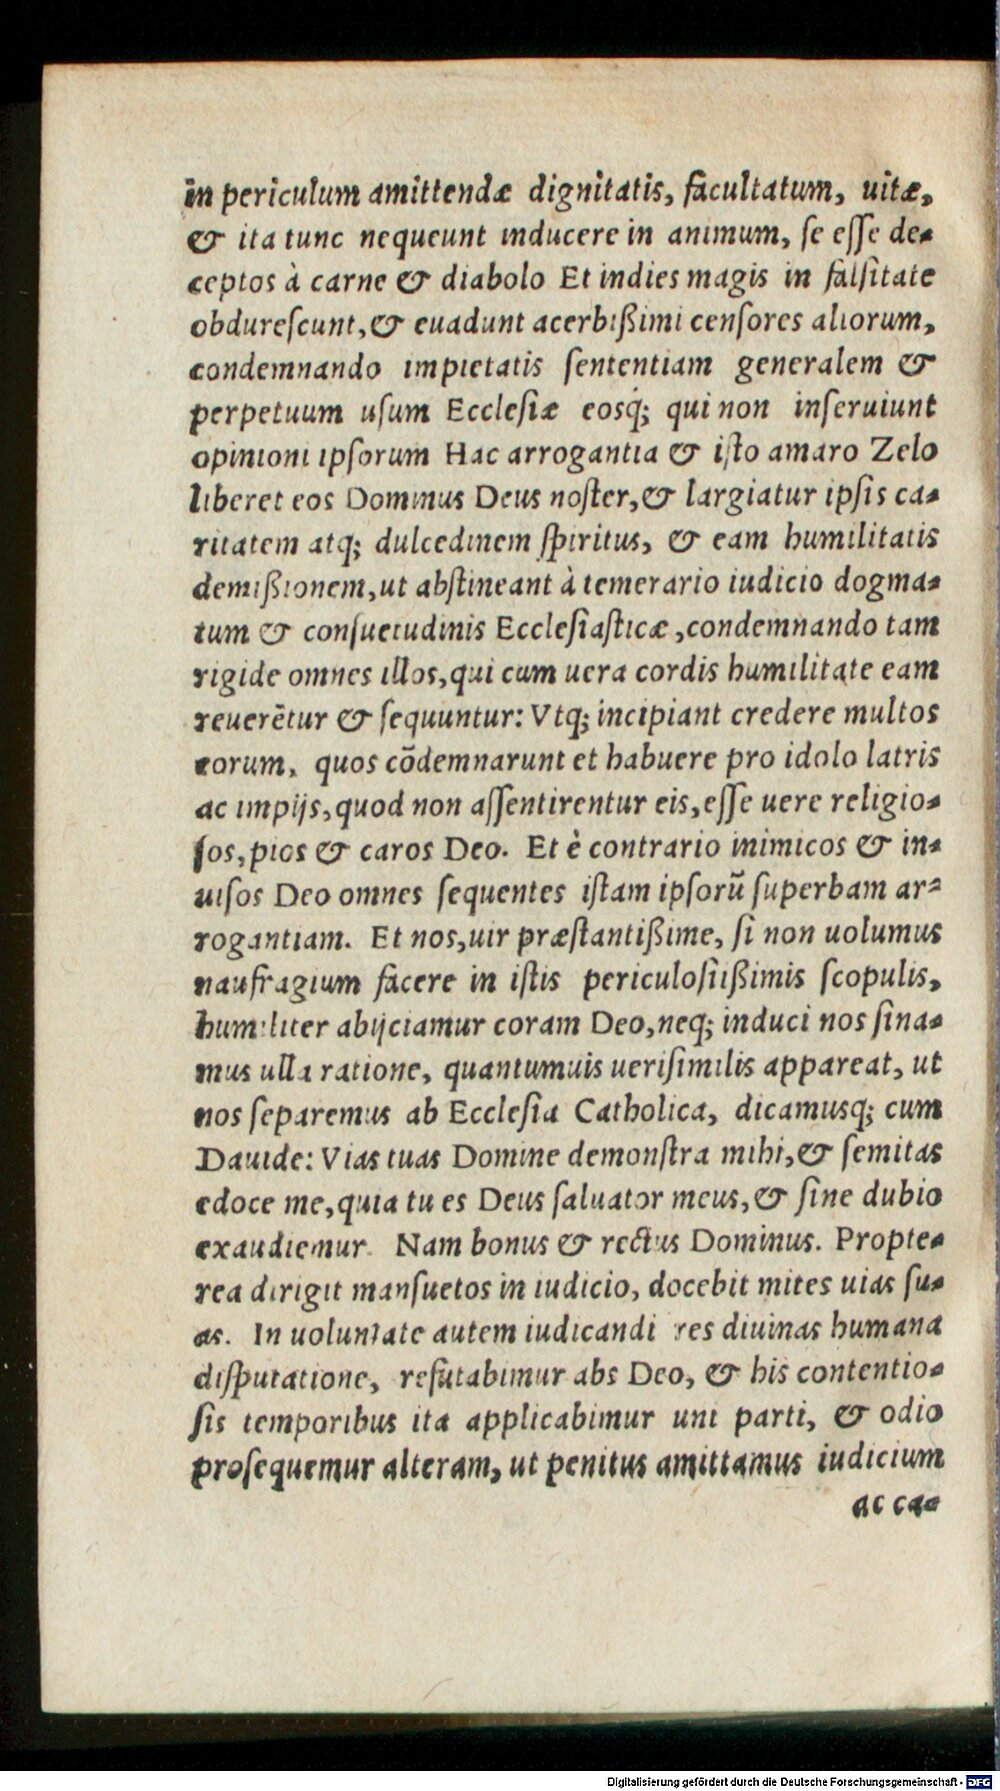 in periculum amittendæ dignitatis, facultatum, uitæ,
& ita tunc nequeunt inducere in animum, ſe eſſe de-
ceptos à carne & diabolo Et indies magis in falſitate
obdureſcunt, & euadunt acerbißimi cenſores aliorum,
condemnando impietatis ſententiam generalem &
perpetuum uſum Eccleſiæ eosq́; qui non inſeruiunt
opinioni ipſorum Hac arrogantia & iſto amaro Zelo
liberet eos Dominus Deus noſter, & largiatur ipſis ca-
ritatem atq; dulcedinem ſpiritus, & eam humilitatis
demißionem, ut abſtineant à temerario iudicio dogma-
tum & conſuetudinis Eccleſiaſticæ, condemnando tam
rigide omnes illos, qui cum uera cordis humilitate eam
reuerẽtur & ſequuntur: Vtq; incipiant credere multos
eorum, quos cõdemnarunt et habuere pro idolo latris
ac impijs, quod non aſſentirentur eis, eſſe uere religio-
ſos, pios & caros Deo. Et è contrario inimicos & in-
uiſos Deo omnes ſequentes iſtam ipſorũ ſuperbam ar-
rogantiam. Et nos, uir præſtantißime, ſi non uolumus
naufragium facere in iſtis periculoſiißimis ſcopulis,
humiliter abijciamur coram Deo, neq; induci nos ſina-
mus ulla ratione, quantumuis ueriſimilis appareat, ut
nos ſeparemus ab Eccleſia Catholica, dicamusq; cum
Dauide: Vias tuas Domine demonſtra mihi, & ſemitas
edoce me, quia tu es Deus ſaluator meus, & ſine dubio
exaudiemur. Nam bonus & rectus Dominus. Propte-
rea dirigit manſuetos in iudicio, docebit mites uias ſu-
as. In uoluntate autem iudicandi res diuinas humana
diſputatione, refutabimur abs Deo, & his contentio-
ſis temporibus ita applicabimur uni parti, & odio
proſequemur alteram, ut penitus amittamus iudicium
ac ca-
Digitalisierung gefördert durch die Deutsche Forschungsgemeinschaft - DFG